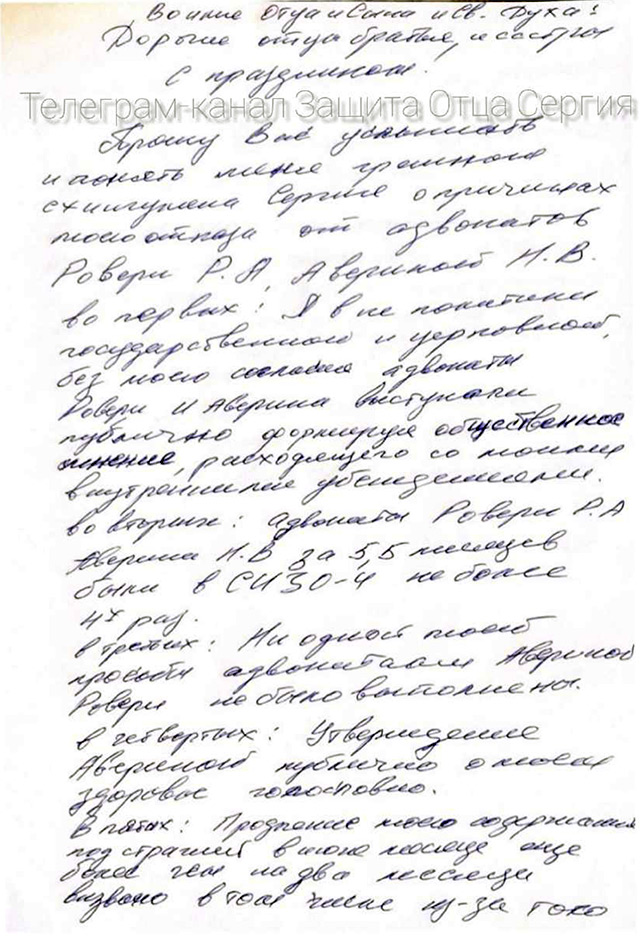 Во имя Отца и Сына и Св. Духа!
Дорогие отцы братья, и сестры
с праздником.
Телеграм-канал Защита Отца Сергия
Прошу Вас услышать
и понять меня грешного
схиигумена Сергия о причинах
моего отказа от адвокатов
Ровери Р.А, Авериной Н.В.
во первых: Я в не политики
государственной и церковной,
без моего согласия адвокаты
Ровери и Аверина выступали
публично формируя общественное
мнение, расходящего со моими
внутренними убеждениями.
во вторых: адвокаты Ровери Р.А
Аверина Н.В за 5,5 месяцев
были в СИЗО-4 не более
4х раз.
в третьих: Ни одной моей
просьбы адвокатами Авериной
Ровери не было выполнены.
в четвертых: Утверждение
Авериной публично о моем
здоровье голословно.
В пятых: Продление моего содержания
под стражей в июне месяце еще
более чем на два месяца
вызвано в том числе из-за того